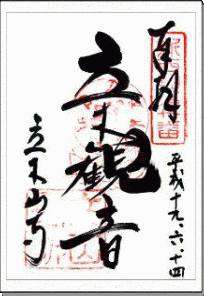 奉拝
平成十九、六、十四
立木観音
立木山寺